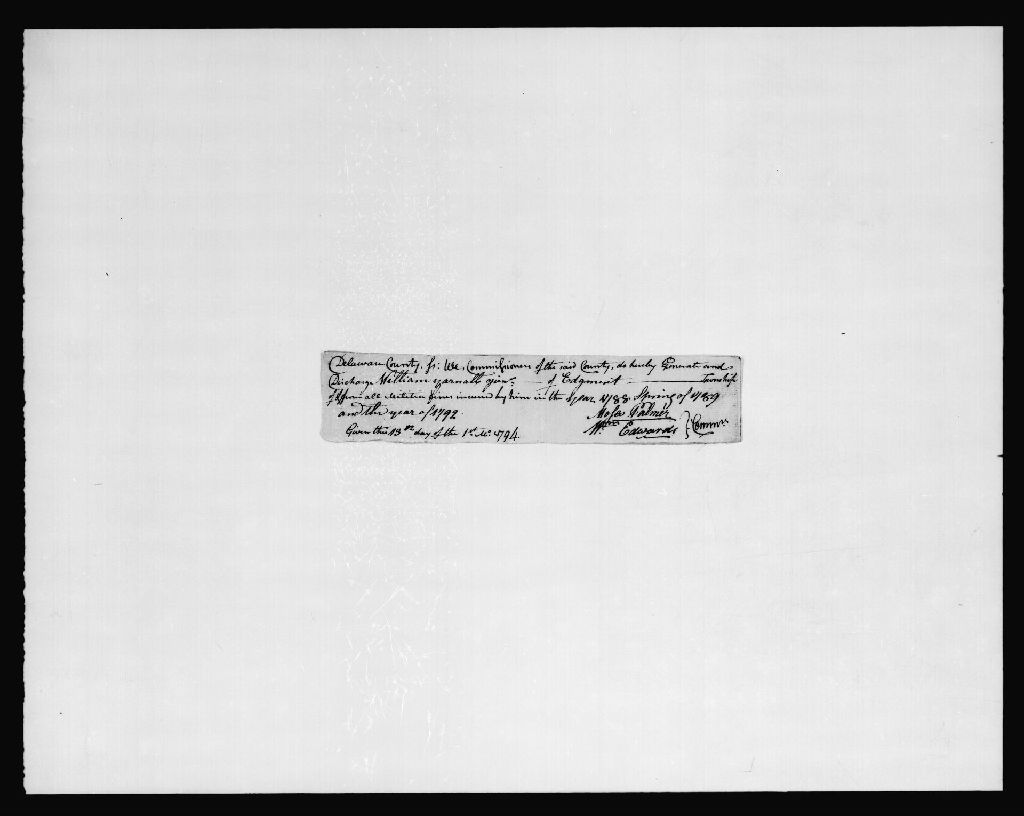 Delaware County, Ss: We, Commissioners of the said County, do hereby Exonerate and
Discharge William Yarnall Junr. of Edgmont Township
of & from all Militia fines incurred by him in the Year 1788 Spring of 1789
and the year of 1792
Given this 13th day of the 1st Mo. 1794.
Mosa Palmer
Wm. Edwards } Commrs.